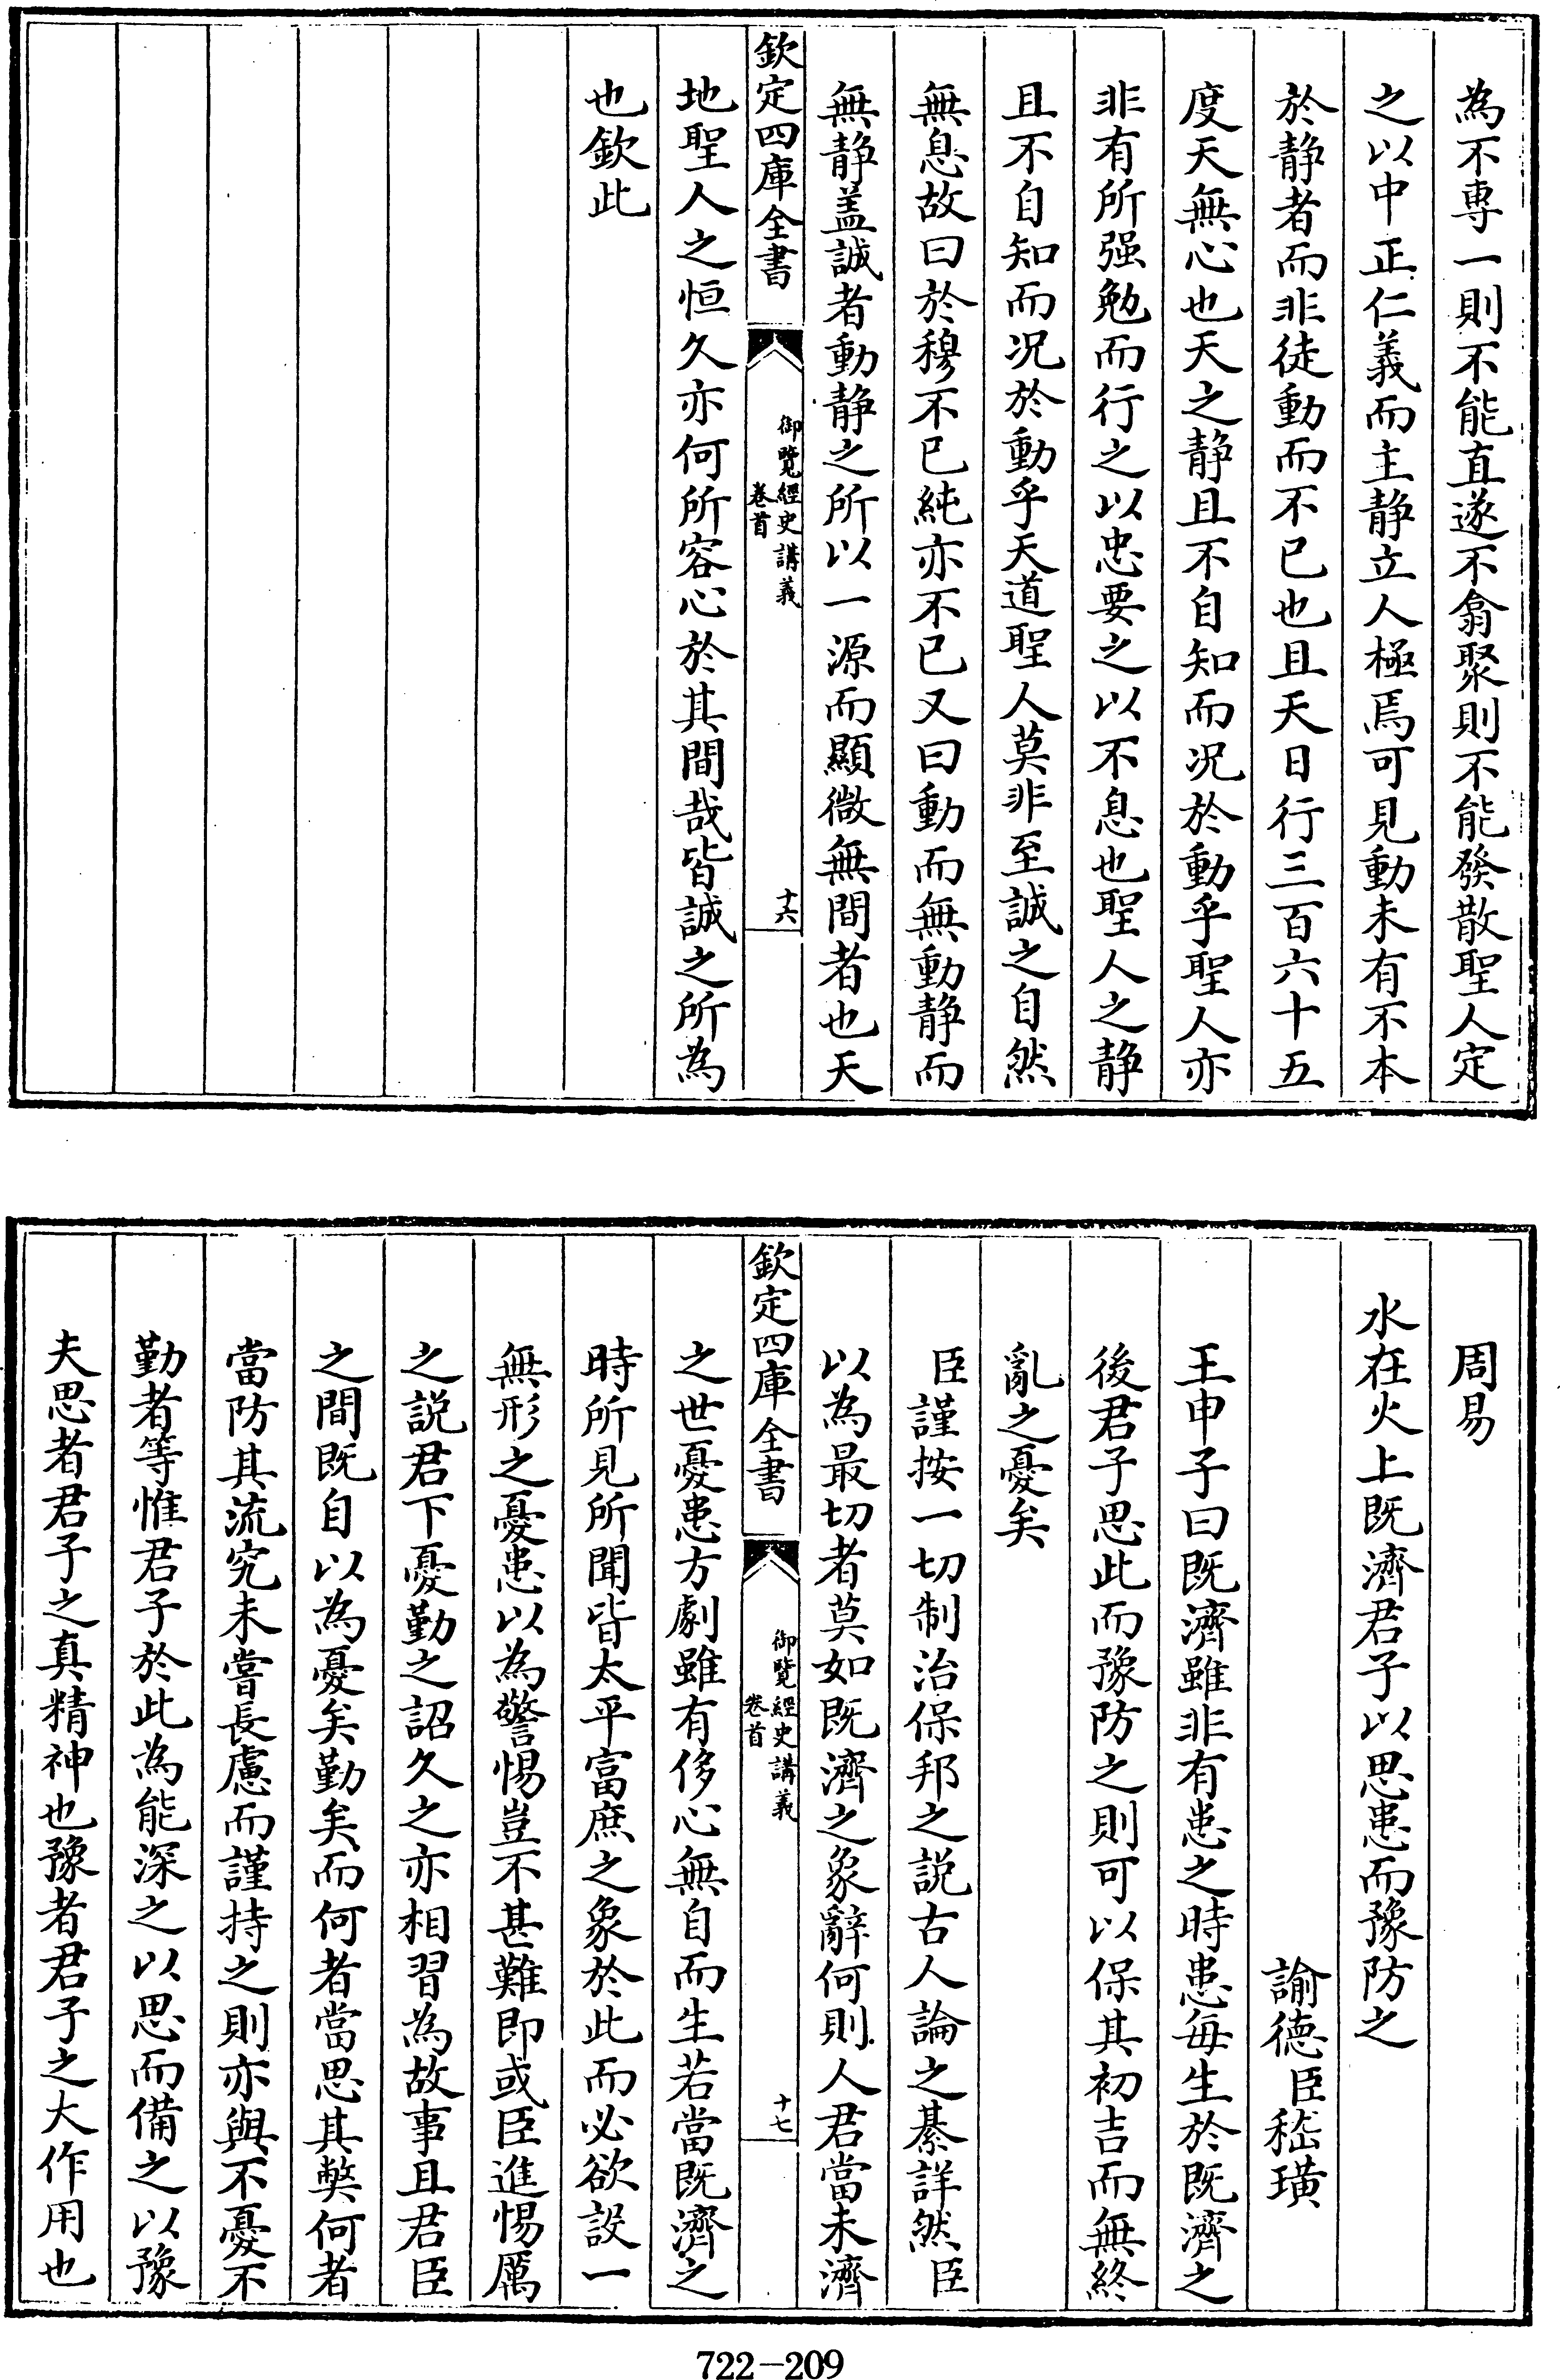 為不專一則不能直遂不翕聚則不能發散聖人定
之以中正仁義而主静立人極焉可見動未有不本
於静者而非徒動而不已也且天日行三百六十五
度天無心也天之静且不自知而况於動乎聖人亦
非有所强勉而行之以忠要之以不息也聖人之静
且不自知而况於動乎天道聖人莫非至誠之自然
無息故曰於穆不已純亦不已又曰動而無動静而
無静盖誠者動静之所以一源而顯微無間者也天
欽定四庫全書
御覽經史講義
卷首
十六
地聖人之恒久亦何所容心於其間哉皆誠之所為
也欽此
周易
水在火上既濟君子以思患而豫防之
諭德臣嵇璜
王申子曰既濟雖非有患之時患每生於既濟之
後君子思此而豫防之則可以保其初吉而無終
亂之憂矣
臣謹按一切制治保邦之説古人論之綦詳然臣
以為最切者莫如既濟之象辭何則人君當未濟
欽定四庫全書
御覽經史講義
卷首
十七
之世憂患方劇雖有侈心無自而生若當既濟之
時所見所聞皆太平富庶之象於此而必欲設一
無形之憂患以為警惕豈不甚難即或臣進惕厲
之説君下憂勤之詔久之亦相習為故事且君臣
之間既自以為憂矣勤矣而何者當思其獘何者
當防其流究未嘗長慮而謹持之則亦與不憂不
勤者等惟君子於此為能深之以思而備之以豫
夫思者君子之真精神也豫者君子之大作用也
722—209